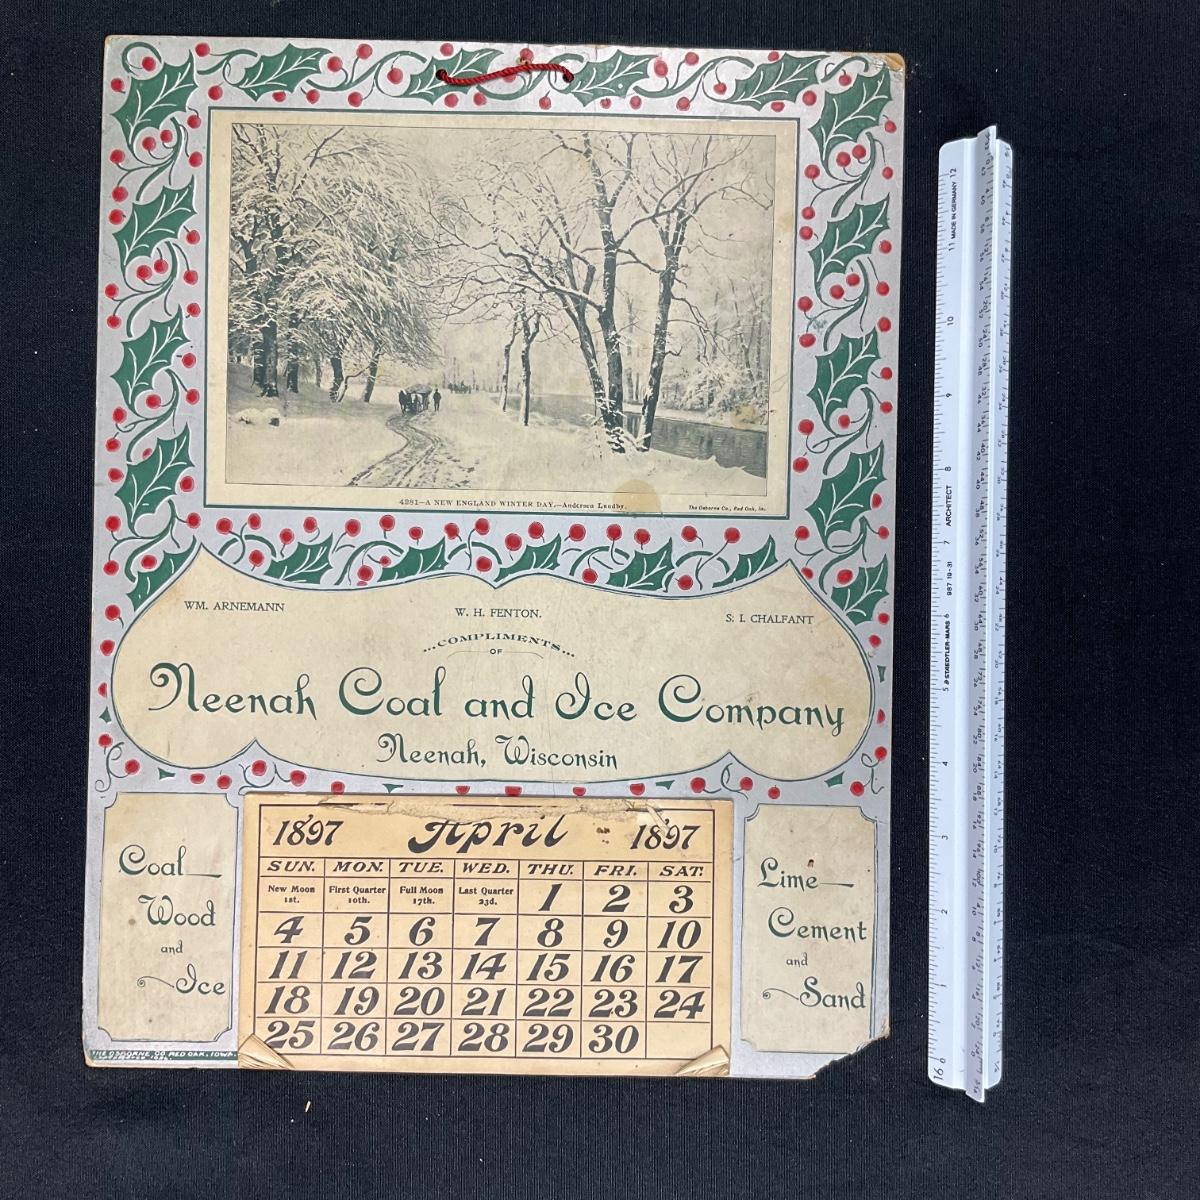 4281—A NEW ENGLAND WINTER DAY.—Anderson Lundby.
The Osborne Co., Red Oak, Ia.
WM. ARNEMANN
W. H. FENTON.
S. I. CHALFANT
...COMPLIMENTS...
OF
Neenah Coal and Ice Company
Neenah, Wisconsin
Coal
Wood
and
Ice
1897 April 1897
SUN. MON. TUE. WED. THU. FRI. SAT.
New Moon 1st. First Quarter 10th. Full Moon 17th. Last Quarter 23d. 1 2 3
4 5 6 7 8 9 10
11 12 13 14 15 16 17
18 19 20 21 22 23 24
25 26 27 28 29 30
Lime
Cement
and
Sand
THE OSBORNE CO RED OAK, IOWA.
MADE IN GERMANY
ARCHITECT
987 19-31
STAEDTLER-MARS
12
11
10
9
8
7
6
5
4
3
2
1
0
16